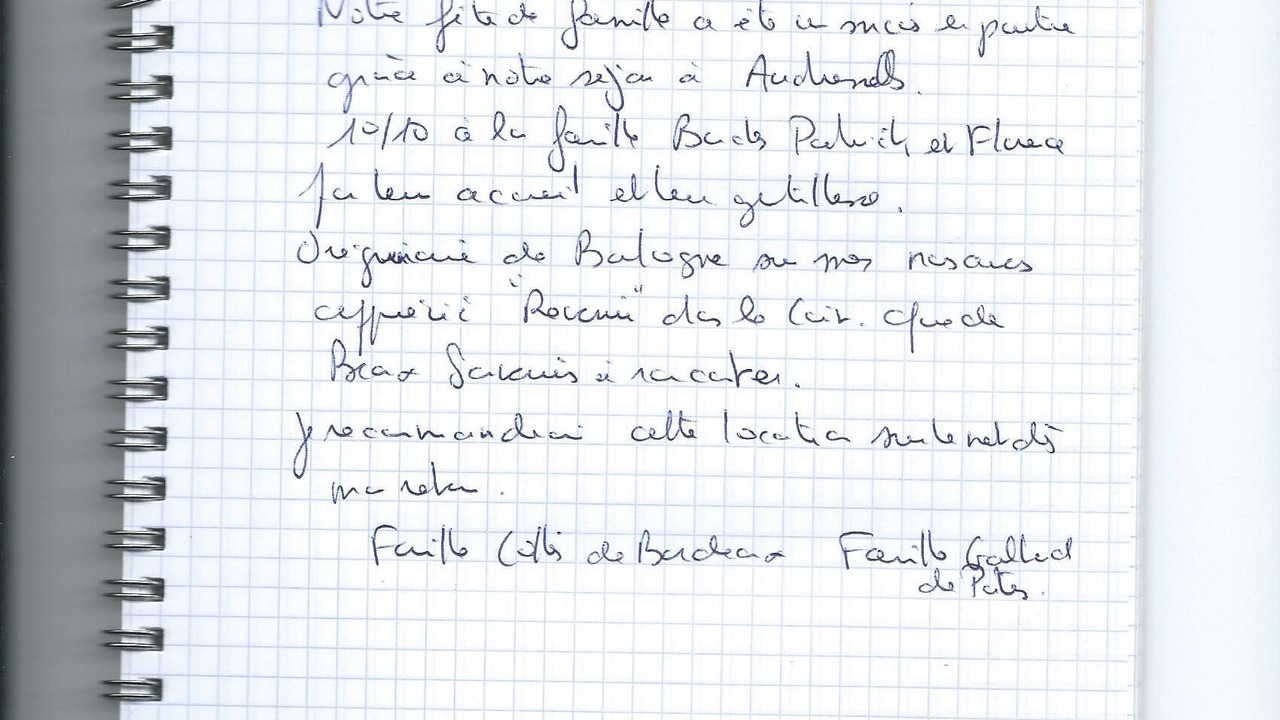 Notre fête de famille a été un succès en partie
grâce à notre séjour à Audresselles.
10/10 à la famille Patrick et Florence
pour leur accueil et leur gentillesse.
Originaire de Boulogne sur mer nous avons
apprécié "Revenir" dans le Coin. que de
Beaux Souvenirs à raconter.
Je recommanderai cette location sur le net dès
mon retour.
Famille de Bordeaux Famille
de